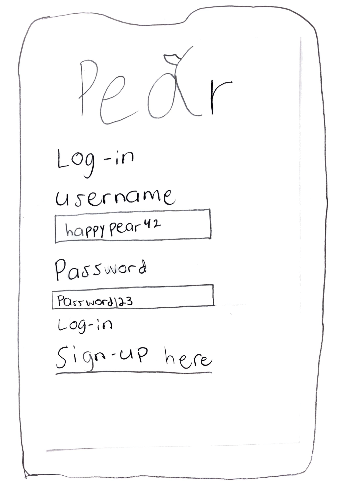 Pear
Log-in
username
happypear42
Password
Password123
Log-in
Sign-up here